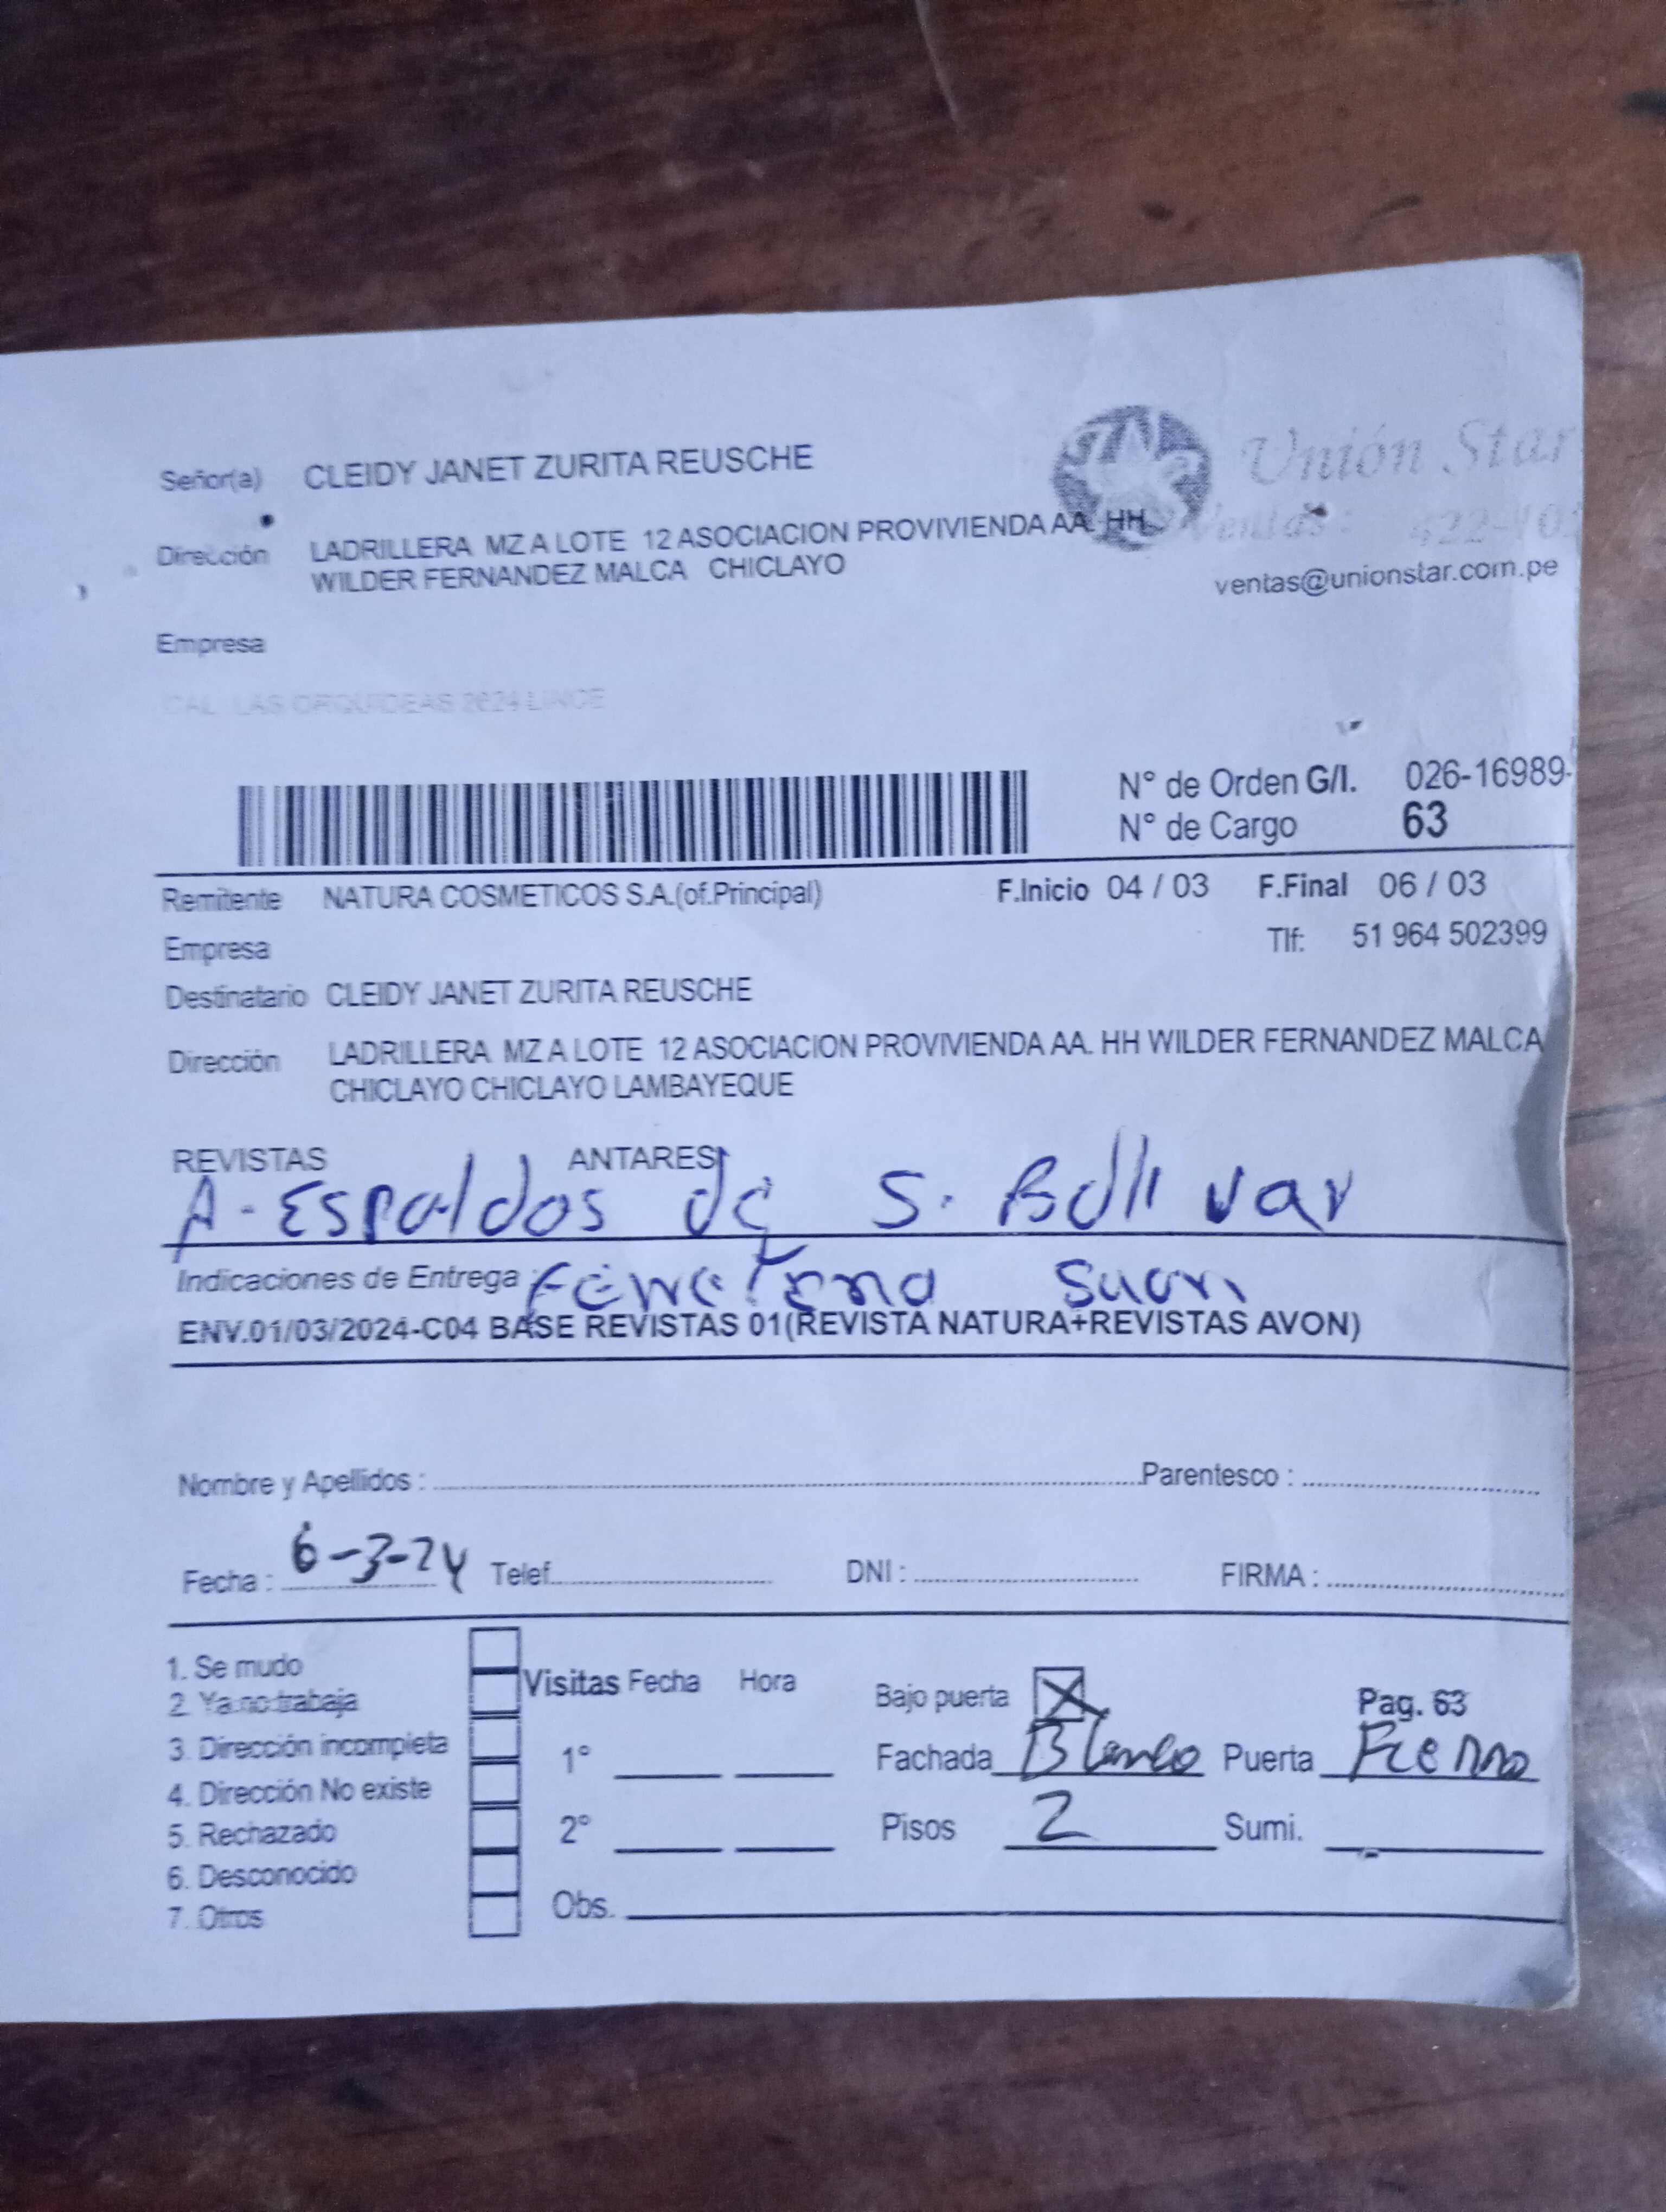 Señor(a) CLEIDY JANET ZURITA REUSCHE
Unión Star
Dirección LADRILLERA MZ A LOTE 12 ASOCIACION PROVIVIENDA AA. HH
Ventas: 422-10
WILDER FERNANDEZ MALCA CHICLAYO
ventas@unionstar.com.pe
Empresa
CAL. LAS ORQUIDEAS 2624 LINCE
N° de Orden G/I. 026-16989-
N° de Cargo 63
Remitente NATURA COSMETICOS S.A.(of.Principal) F.Inicio 04 / 03 F.Final 06 / 03
Empresa Tlf: 51 964 502399
Destinatario CLEIDY JANET ZURITA REUSCHE
Dirección LADRILLERA MZ A LOTE 12 ASOCIACION PROVIVIENDA AA. HH WILDER FERNANDEZ MALCA
CHICLAYO CHICLAYO LAMBAYEQUE
REVISTAS ANTARES
A-Espaldos de S. Bollivar
Indicaciones de Entrega :
ENV.01/03/2024-C04 BASE REVISTAS 01(REVISTA NATURA+REVISTAS AVON)
Nombre y Apellidos : Parentesco :
Fecha : 6-3-24 Telef. DNI : FIRMA :
1. Se mudo
2. Ya no trabaja
3. Dirección incompleta
4. Dirección No existe
5. Rechazado
6. Desconocido
7. Otros
Visitas Fecha Hora
1°
2°
Obs.
Bajo puerta X Pag. 63
Fachada Blanco Puerta Fierro
Pisos 2 Sumi.